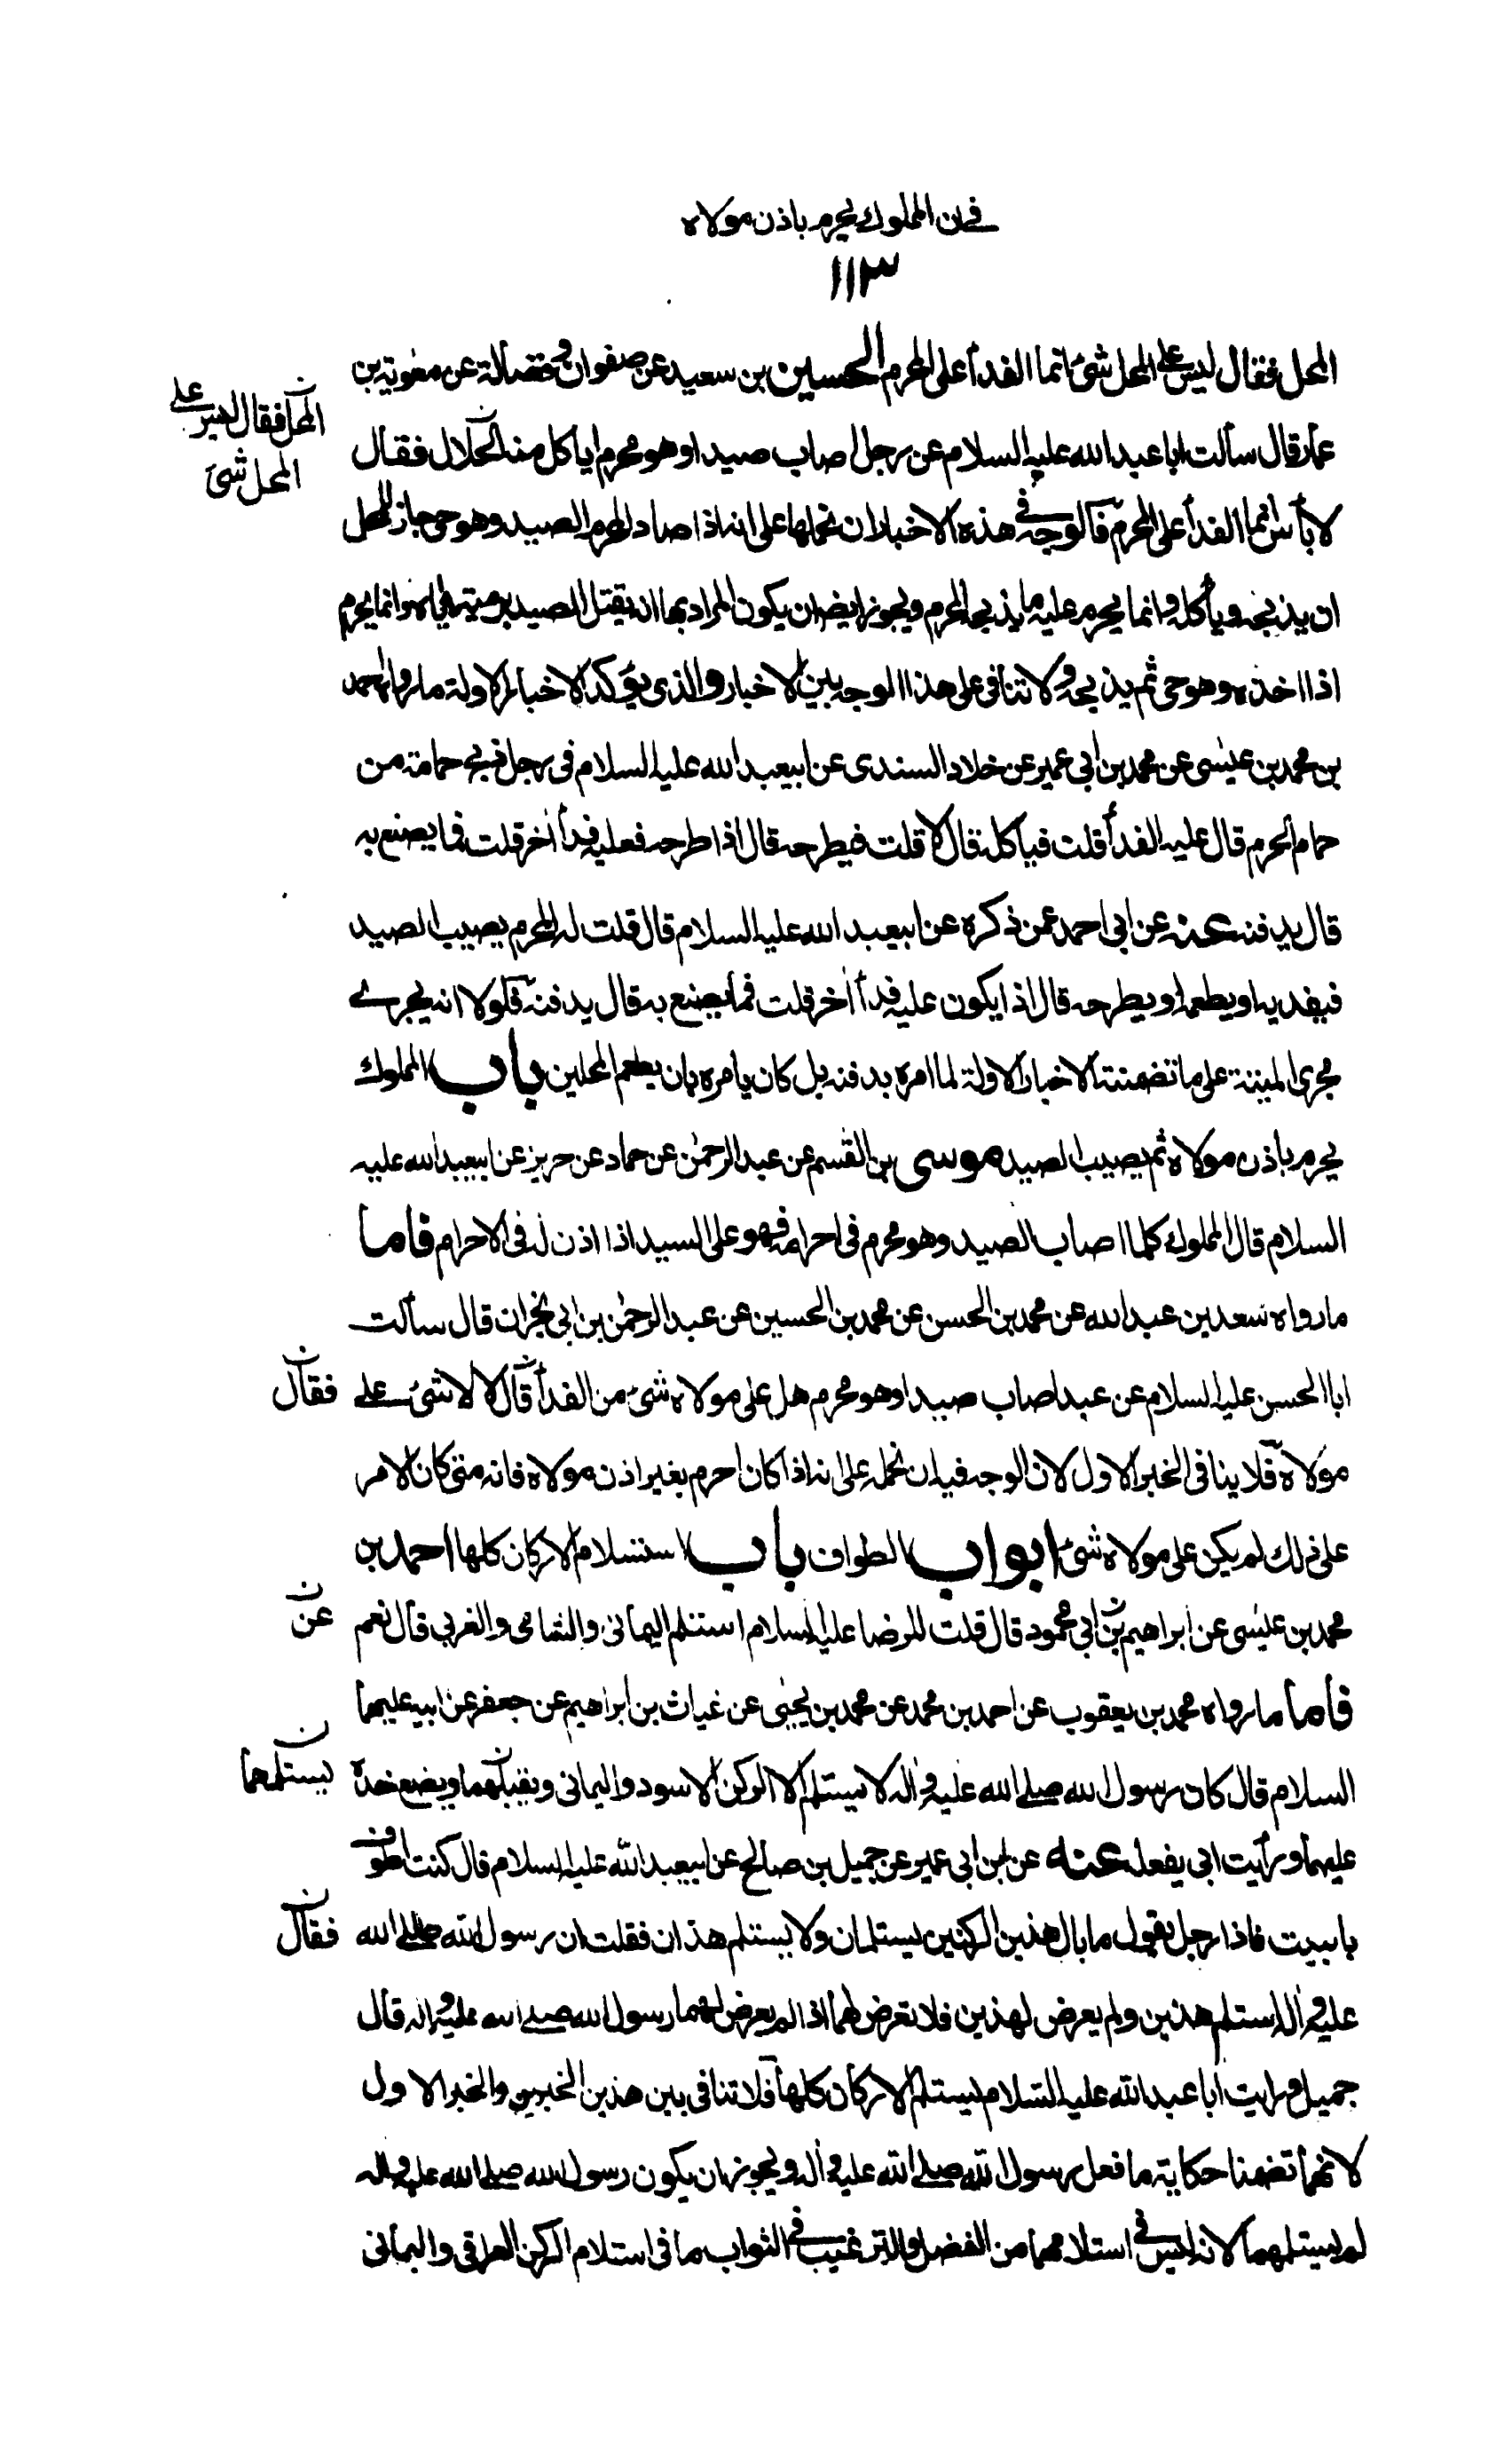 في ان المملوك يحرم باذن مولاه
١١٣
المحل فقال ليس على المحل شئ انما الفداء على المحرم الحسين بن سعيد عن صفوان وفضالة عن معوية بن
عمار قال سألت ابا عبد الله عليه السلام عن رجل اصاب صيدا وهو محرم اياكل منه الحلال فقال
لا بأس انما الفداء على المحرم فالوجه في هذه الاخبار ان نحملها على انه اذا صاد المحرم الصيد وهو حي جاز للمحل
ان يذبحه ويأكله وانما يحرم عليه ما يذبحه المحرم ويجوز ايضا ان يكون المراد بها انه يقتل الصيد برميته اياه وانما يحرم
اذا اخذه وهو حي ثم يذبحه ولا تنافى على هذا الوجه بين الاخبار والذى يؤكد الاخبار الاولة ما رواه احمد
بن محمد بن عيسى عن محمد بن ابي عمير عن خلاد السندى عن ابيعبد الله عليه السلام فى رجل ذبح حمامة من
حمام الحرم قال عليه الفداء قلت فيأكله قال لا قلت فيطرحه قال اذا طرحه فعليه فداء اخر قلت فما يصنع به
قال يدفنه عنه عن ابي احمد عمن ذكره عن ابيعبد الله عليه السلام قال قلت له المحرم يصيب الصيد
فيفديه او يطعمه او يطرحه قال اذا يكون عليه فداء اخر قلت فما يصنع به قال يدفنه فلولا انه يجرى
مجرى الميتة على ما تضمنته الاخبار الاولة لما امره بدفنه بل كان يامره بان يطعم المحلين باب المملوك
يحرم باذن مولاه ثم يصيب الصيد موسى بن القسم عن عبد الرحمن عن حماد عن حريز عن ابيعبد الله عليه
السلام قال المملوك كلما اصاب الصيد وهو محرم فى احرامه فهو على السيد اذا اذن له فى الاحرام فاما
ما رواه سعد بن عبد الله عن محمد بن الحسن عن محمد بن الحسين عن عبد الرحمن بن ابي نجران قال سألت
ابا الحسن عليه السلام عن عبد اصاب صيدا وهو محرم هل على مولاه شئ من الفداء قال لا لا شئ على
مولاه فلا ينافى الخبر الاول لان الوجه فيه ان نحمله على انه اذا كان احرم بغير اذن مولاه فانه متى كان الامر
على ذلك لم يكن على مولاه شئ ابواب الطواف باب استلام الاركان كلها احمد بن
محمد بن عيسى عن ابراهيم بن ابي محمود قال قلت للرضا عليه السلام استلم اليمانى والشامى والغربى قال نعم
فاما ما رواه محمد بن يعقوب عن احمد بن محمد عن محمد بن يحيى عن غياث بن ابراهيم عن جعفر عن ابيه عليهما
السلام قال كان رسول الله صلى الله عليه واله لا يستلم الا الركن الاسود واليمانى ويقبلهما ويضع خده
عليهما ورأيت ابى يفعله عنه عن ابن ابي عمير عن جميل بن صالح عن ابيعبد الله عليه السلام قال كنت اطوف
بالبيت فاذا رجل يقول ما بال هذين الركنين يستلمان ولا يستلم هذان فقلت ان رسول الله صلى الله
عليه واله استلم هذين ولم يعرض لهذين فلا تعرض لهما اذ لم يعرض لهما رسول الله صلى الله عليه واله قال
جميل ورايت ابا عبد الله عليه السلام يستلم الاركان كلها فلا تنافى بين هذين الخبرين والخبر الاول
لانهما تضمنا حكاية ما فعل رسول الله صلى الله عليه واله ويجوز ان يكون رسول الله صلى الله عليه واله
لم يستلمهما لانه ليس في استلامهما من الفضل والترغيب في الثواب ما فى استلام الركن العراقى واليمانى
المحل فقال ليس على
المحل شئ
فقال
عن
يستلمهما
فقال